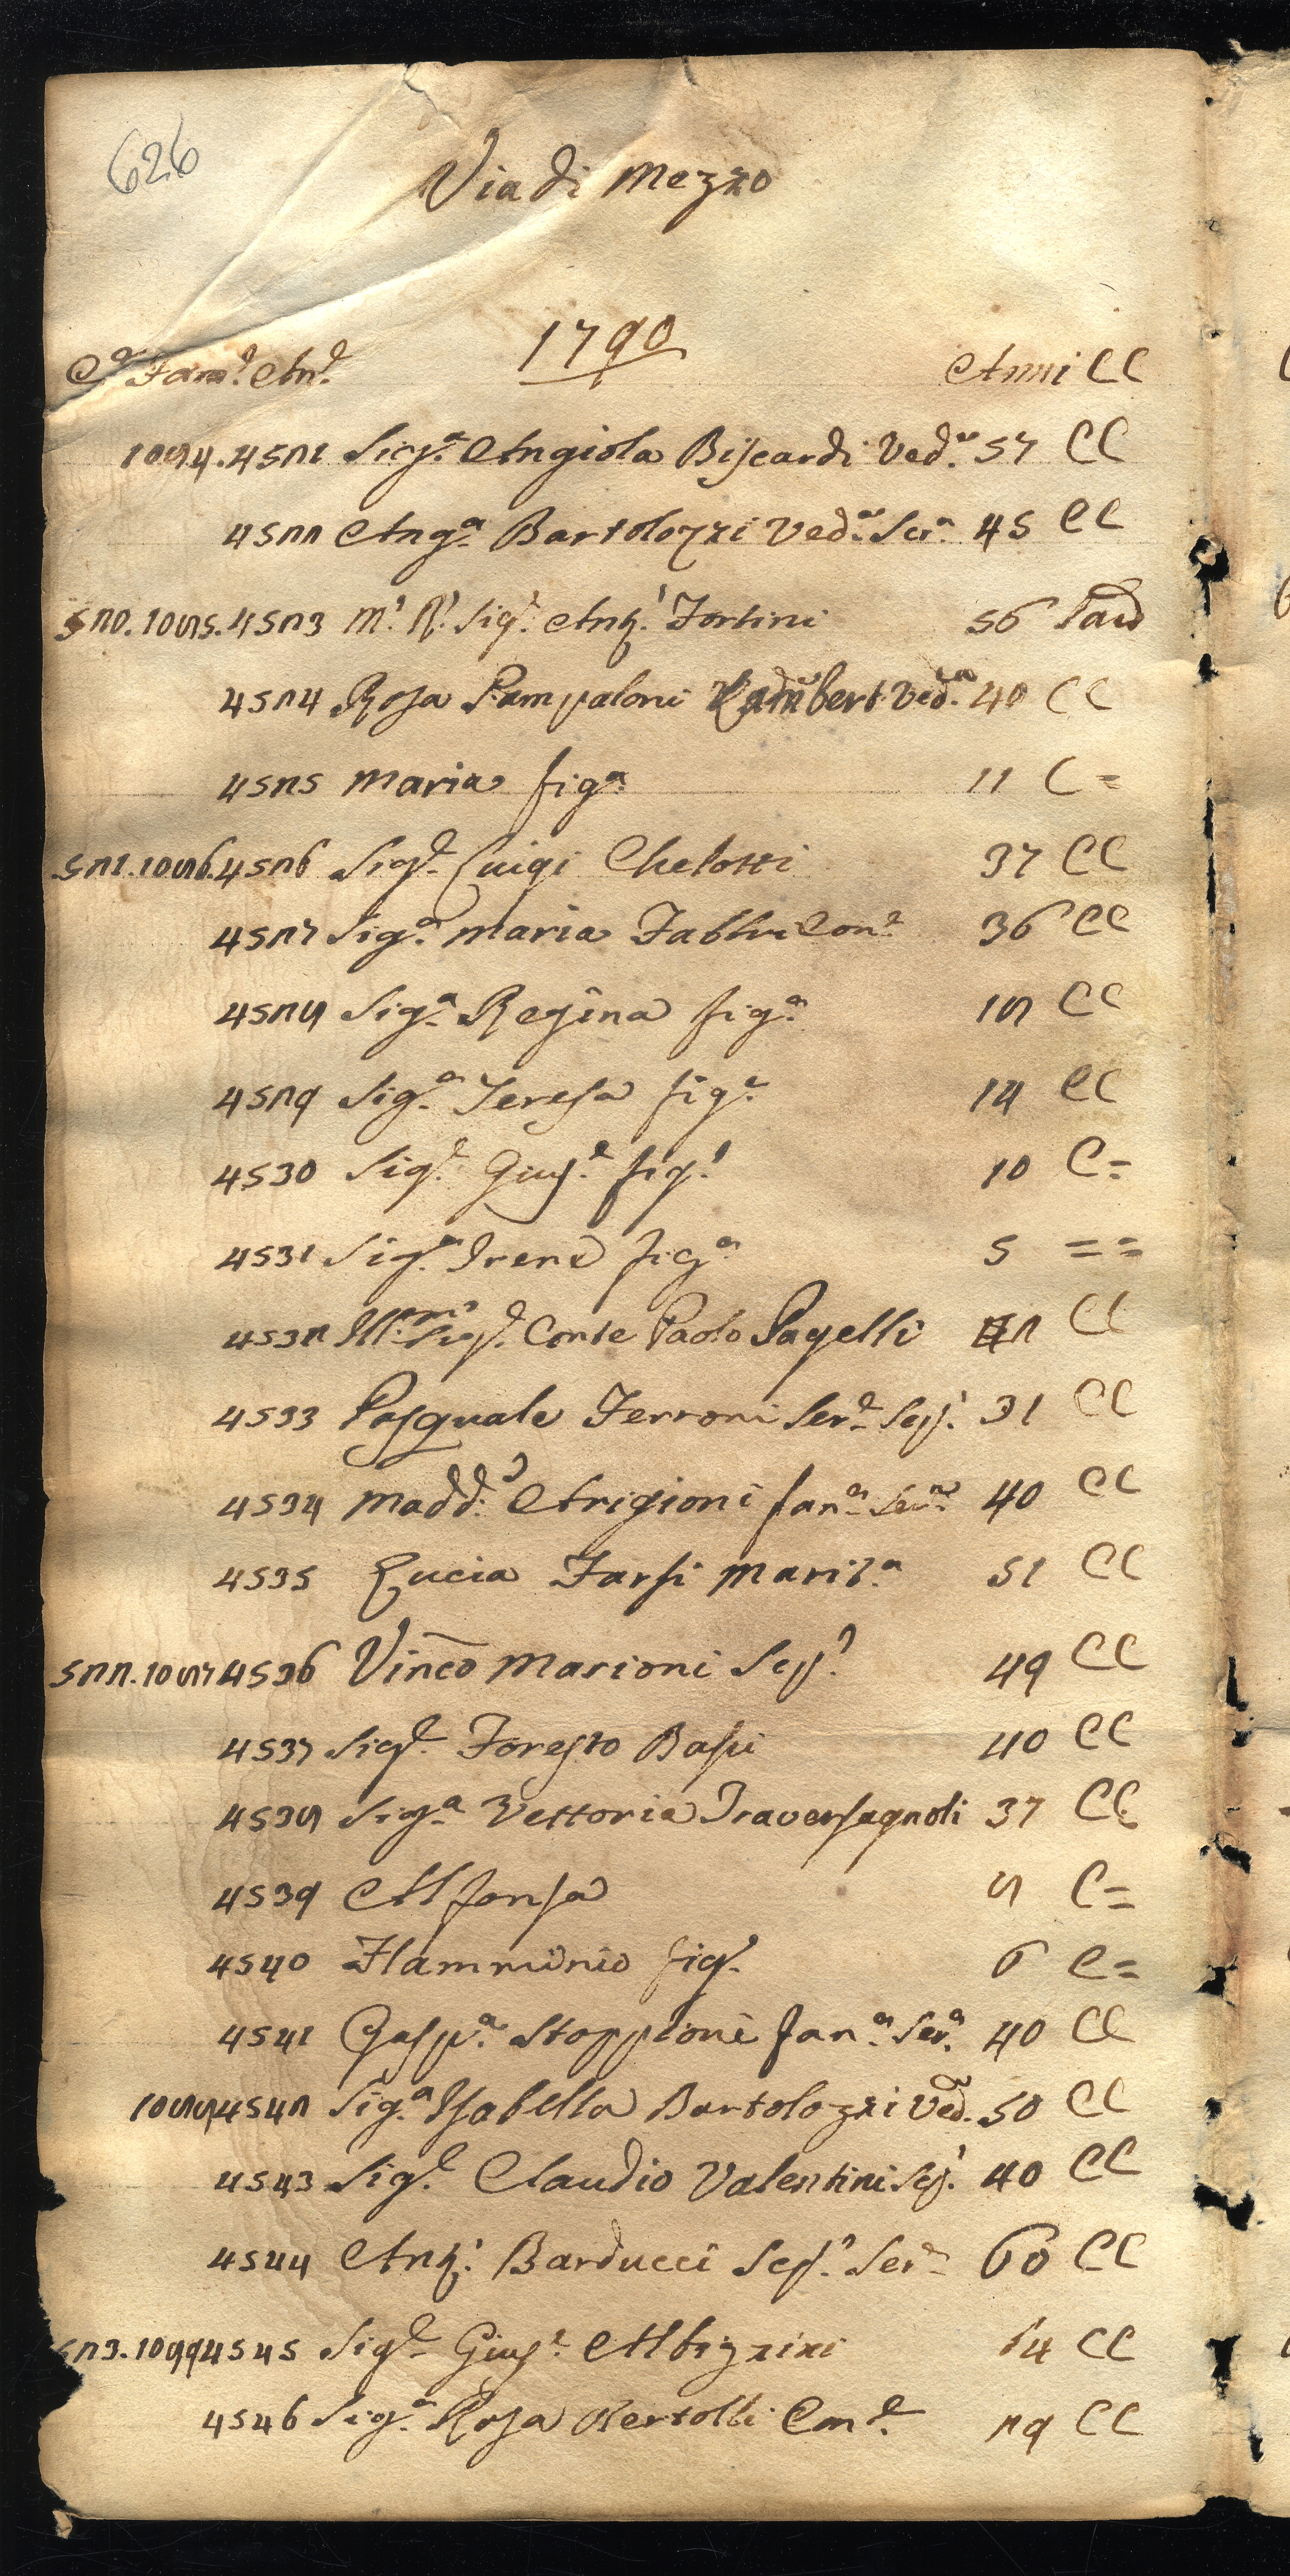 626
Via di Mezzo
1790
Ce Fame Ane Anni CC
1084. 4521 Siga. Angiola Biscardi Veda. 57 CC
4522 Anga. Bartolozzi Veda. Sera. 45 CC
520. 1085. 4523 M. R. Sigr. Anto. Fortini 56 Sacd
4524 Rosa Pampaloni Veda. 40 CC
4525 Maria figa. 11 C=
521. 1086. 4526 Sige. Luigi Chelotti 37 CC
4527 Siga. Maria Fabbri Cone. 36 CC
4528 Siga. Regina figa. 18 CC
4529 Siga. Teresa figa. 14 CC
4530 Sige. Giuse. figo. 10 C=
4531 Siga. Irene figa. 5 ==
4532 Illmo. Sige. Conte Paolo Pagelli 2 CC
4533 Pasquale Ferroni Sere. Sepo. 31 CC
4534 Madda. Arigioni fana. Sera. 40 CC
4535 Lucia Farsi Marita. 51 CC
522. 1087 4536 Vinco Marioni Sepo. 49 CC
4537 Sige. Foresto Bassi 40 CC
4538 Siga. Vettoria Traversagnoli 37 CC
4539 Alfonsa 8 C=
4540 Flamminio fig. 6 C=
4541 Gaspa. Stoppioni fana. Sera. 40 CC
1088 4542 Siga. Isabella Bartolozzi Veda. 50 CC
4543 Sige. Claudio Valentini Sepo. 40 CC
4544 Anto. Barducci Sepo. Sere. 60 CC
523. 1099 4545 Sige. Giuse. Albizzini 54 CC
4546 Siga. Rosa Bertolli Cone. 29 CC